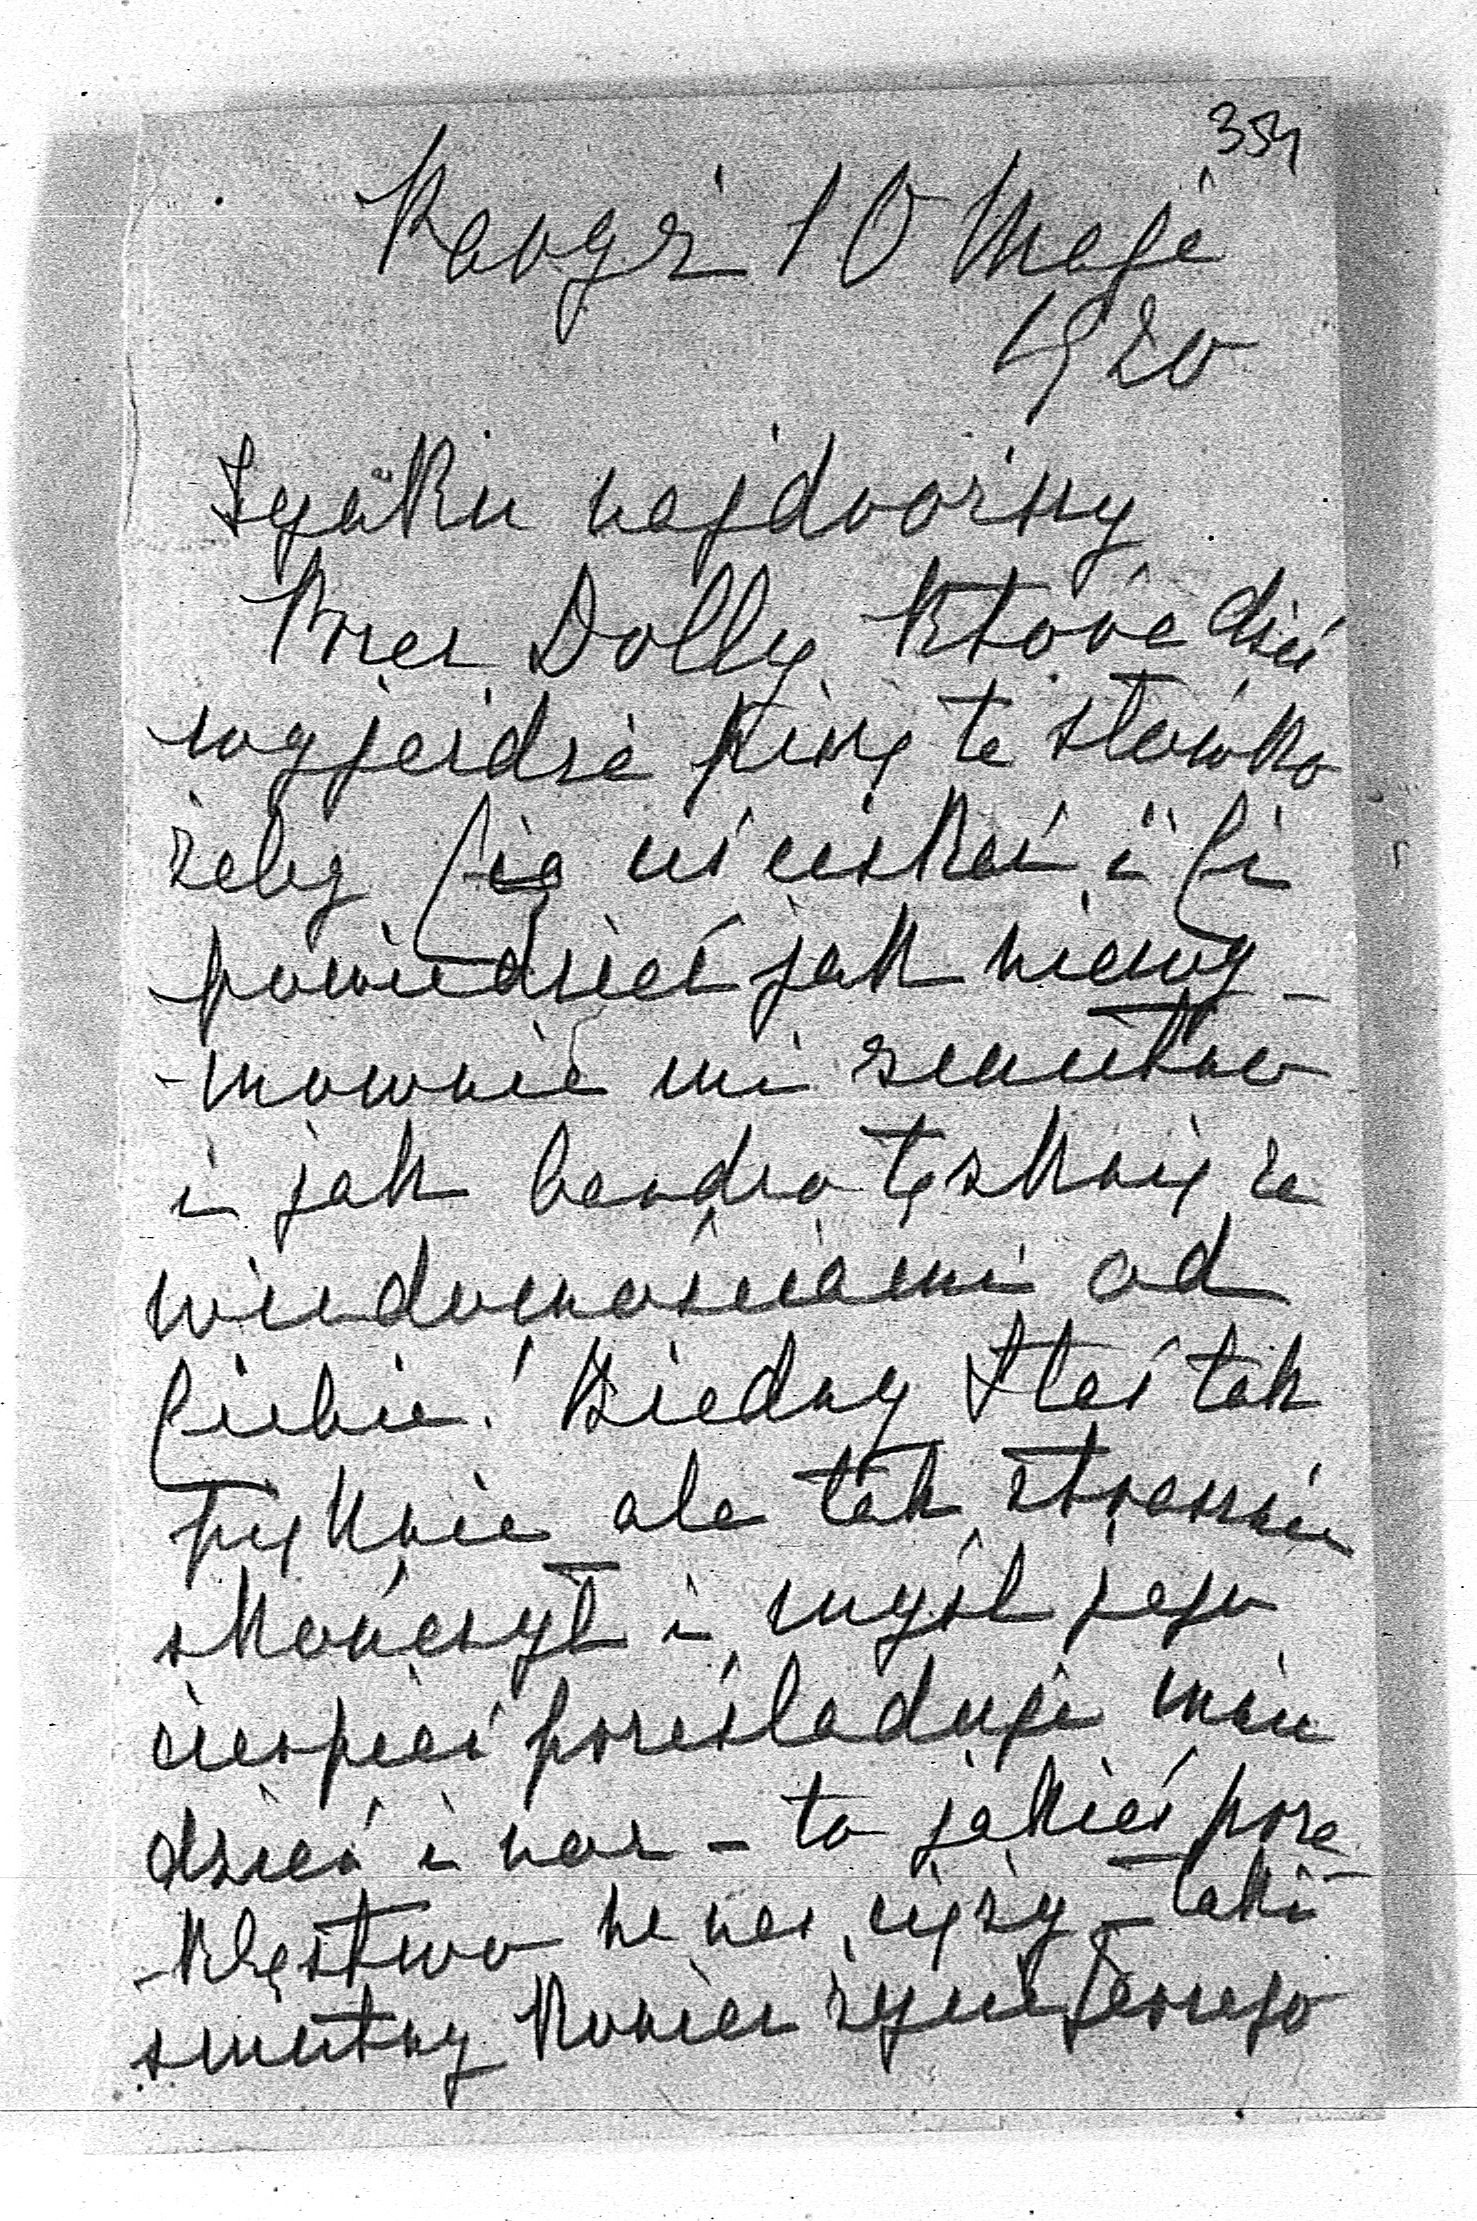 354
Paryż 10 Maja
1920
Synku najdroższy
Przez Dolly która dziś
wyjeżdża piszę te słówko
żeby Cię uściskać i Ci
powiedzieć jak niewy-
-mownie mi smutno
i jak bardzo tęsknię za
wiadomościami od
Ciebie! Biedny Staś tak
pięknie ale tak strasznie
skończył i myśl jego
cierpień prześladuje mnie
dzień i noc – to jakieś prze-
-kleństwo na nas ciąży – taki
smutny koniec życia